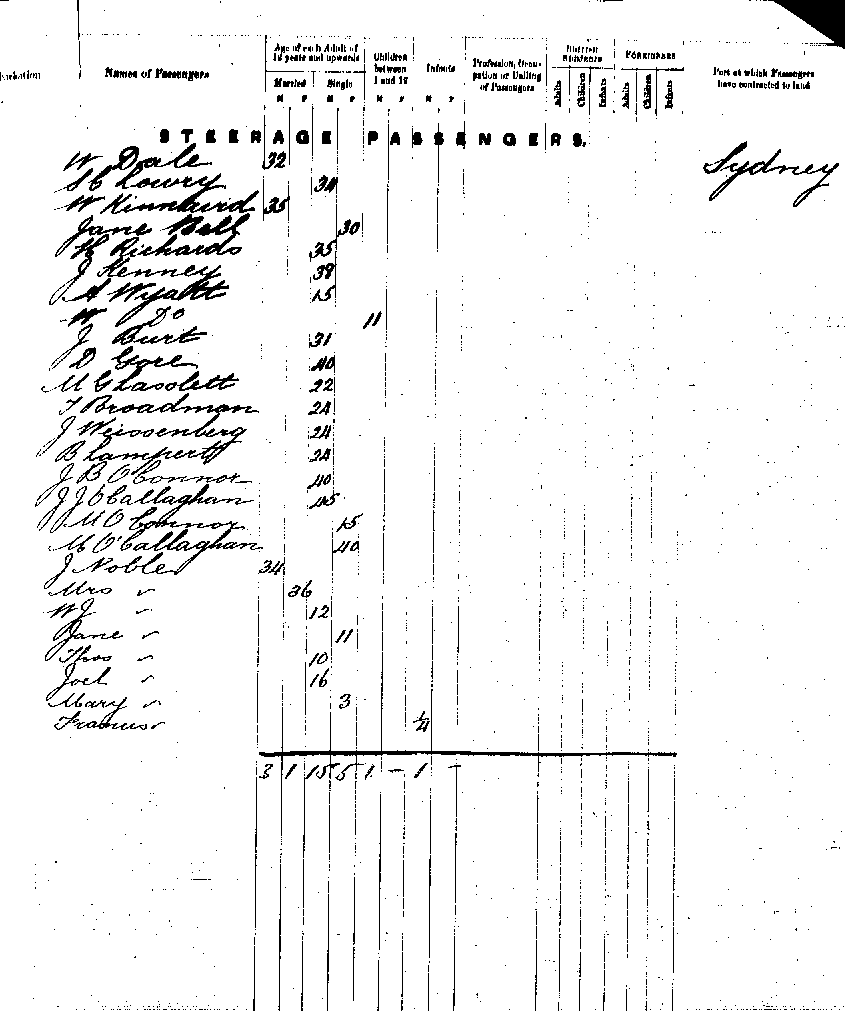 Names of Passengers
Age of each Adult of 12 years and upwards
Married Single
M F M F
Children between 1 and 12
M F
Infants
M F
Profession, Occupation or Calling of Passengers
Adults Children Infants
FOREIGNERS
Adults Children Infants
Port at which Passengers have contracted to land
STEERAGE PASSENGERS.
W Dale 32 Sydney
S C Lowry 34
W Kinnaird 35
Jane Bell 30
Richards 35
J Kenney 38
A Wyatt 15
W Do 11
J Burt 31
D Gore 40
M Glasslett 22
T Broadman 24
J Weissenberg 24
B Lampert 24
J B O'Connor 40
J J O'Callaghan 45
M O'Connor 15
M O'Callaghan 40
J Noble 34
Mrs " 36
W J " 12
Jane " 11
Thos " 10
Joel " 16
Mary " 3
Francis " 1/4
3 1 15 5 1 - 1 -